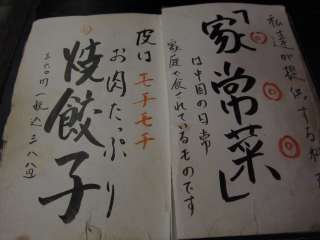 私達が提供する
「家常菜」
は中国の日常
家庭で食べれているものです
皮はモチモチ
お肉たっぷり
焼餃子
三六〇円(税込三八八円)